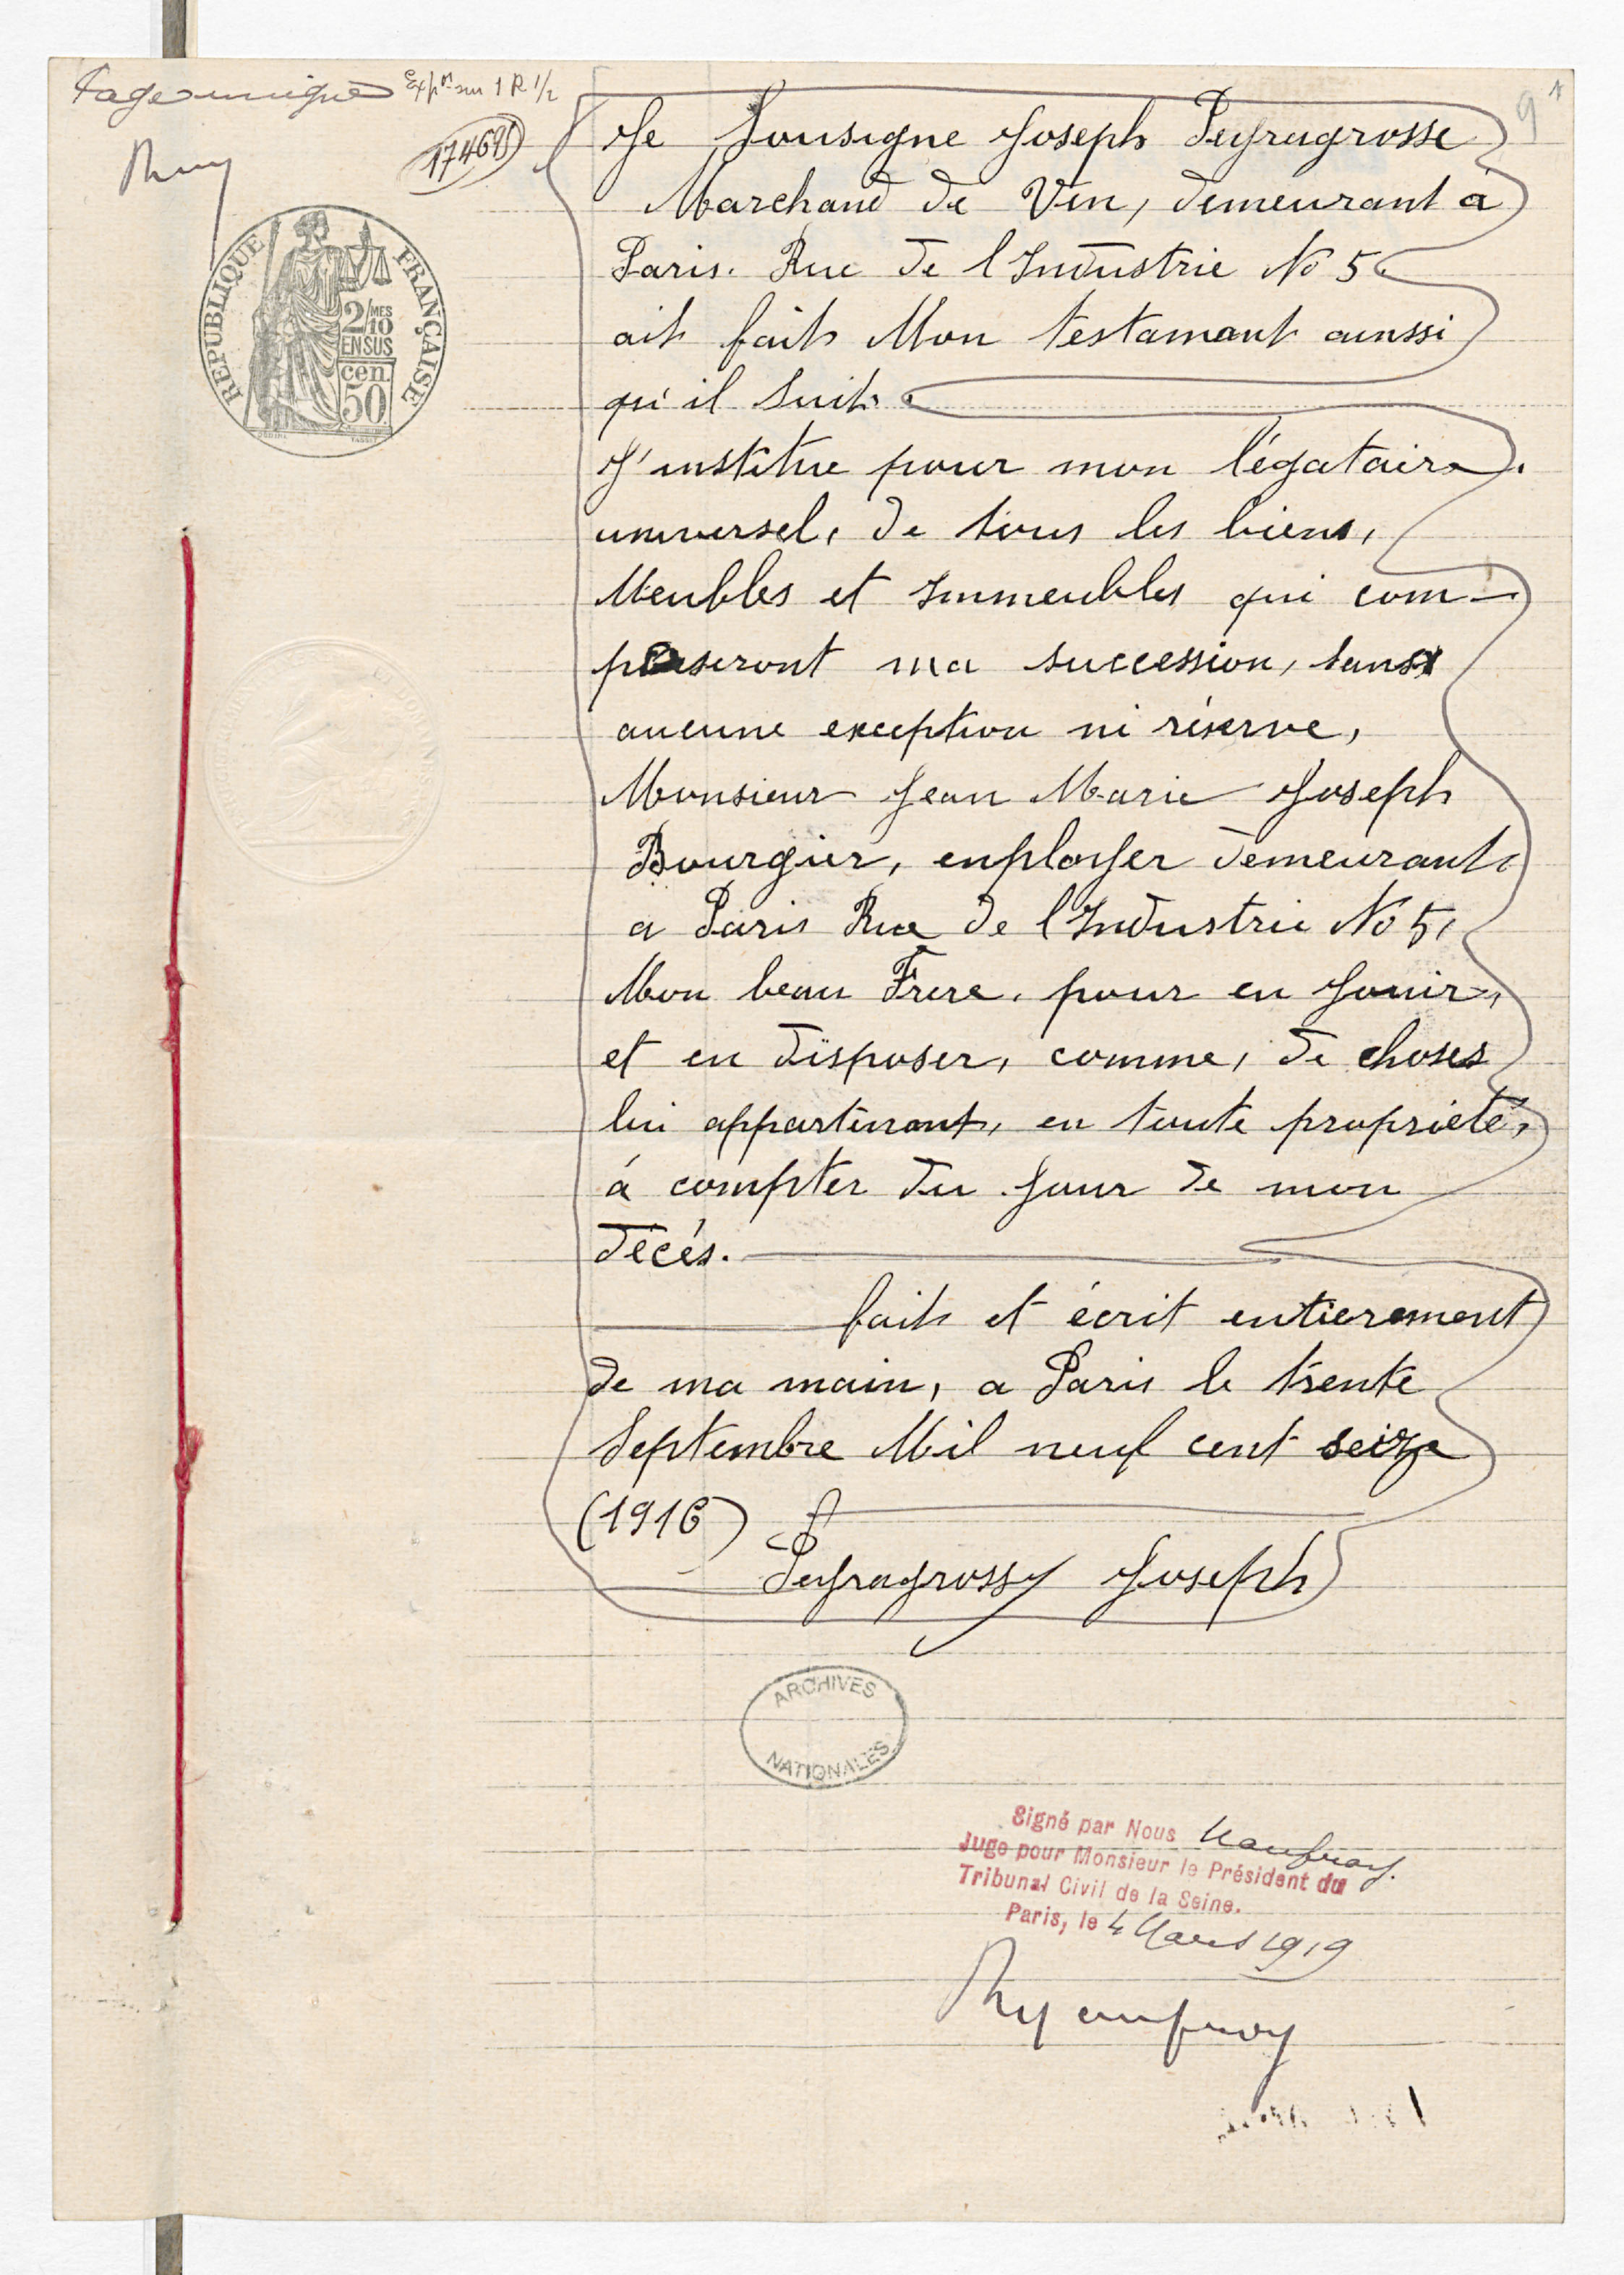 Page unique
Exp^on sur 1 R 1/2
174685
9
REPUBLIQUE FRANÇAISE
2/10 MES
EN SUS
cen.
50
Je Sousigne Joseph Peyragrosse
Marchand de Vin, demeurant à
Paris. Rue de l'Industrie No 5
ait fait Mon testamant ainssi
qu'il Suit.
J'institue pour mon légataire.
universel, de tous les biens,
Meubles et Immeubles qui com-
poseront ma succession, sans
aucune exception ni réserve,
Monsieur Jean Marie Joseph
Bourgier, employer demeurant
a Paris Rue de l'Industrie No 5,
Mon beau Frere, pour en Jouir,
et en disposer, comme, de choses
lui appartenant, en toute proprieté,
á compter du Jour de mon
décés.
fait et écrit entierement
de ma main, a Paris le trente
Septembre Mil neuf cent seize
(1916)
Peyragrosse Joseph
ARCHIVES
NATIONALES
Signé par Nous
Juge pour Monsieur le Président du
Tribunal Civil de la Seine.
Paris, le 4 Mars 1919